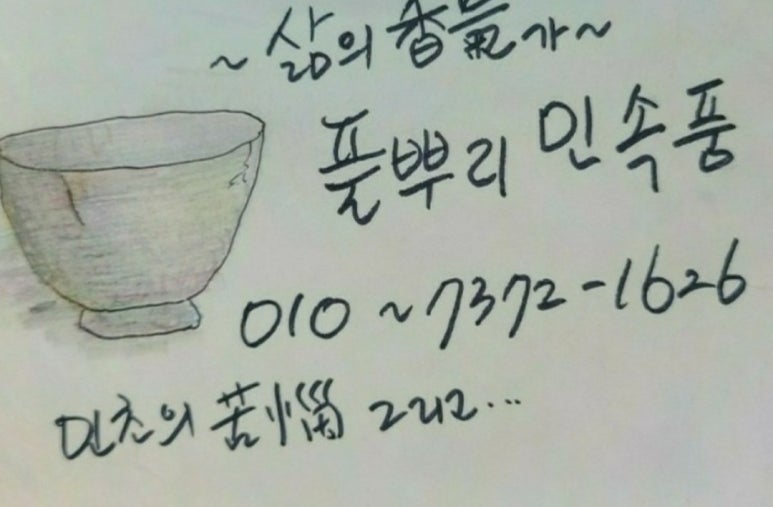 ~삶의 香氣가~
풀뿌리 민속풍
010~7372-1626
민초의 苦惱 그리고...